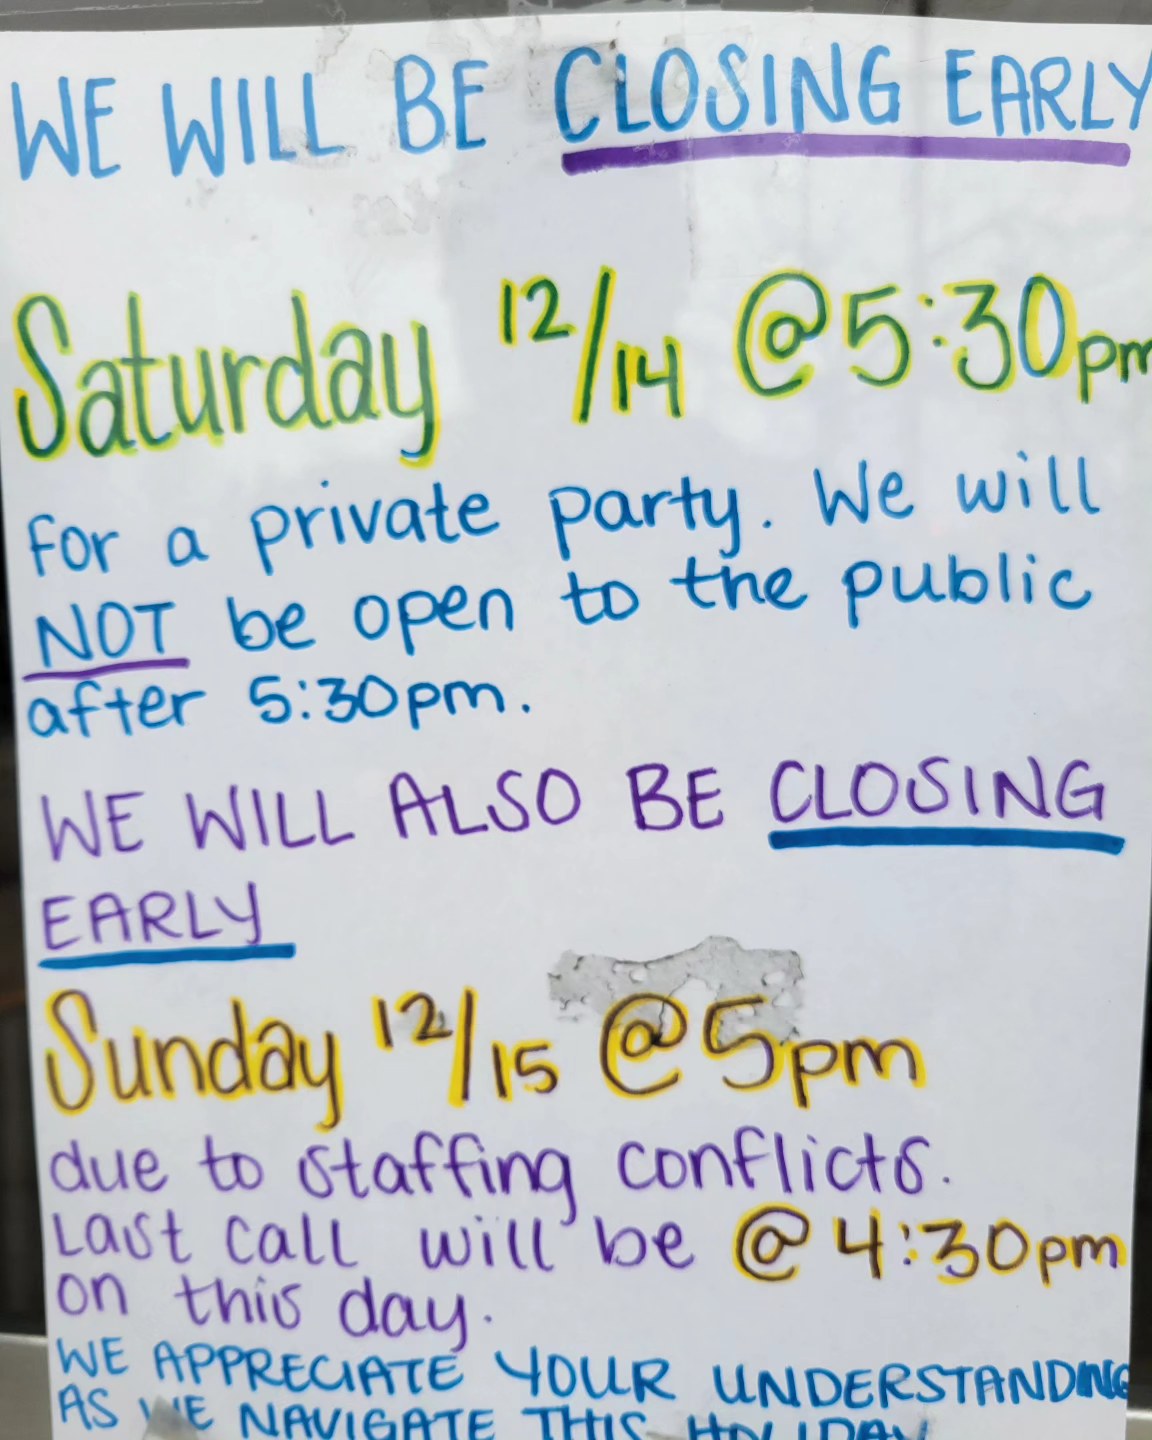 WE WILL BE CLOSING EARLY
Saturday 12/14 @5:30pm
for a private party. We will
NOT be open to the public
after 5:30pm.
WE WILL ALSO BE CLOSING
EARLY
Sunday 12/15 @5pm
due to staffing conflicts.
Last call will be @ 4:30pm
on this day.
WE APPRECIATE YOUR UNDERSTANDING
AS WE NAVIGATE THIS HOLIDAY